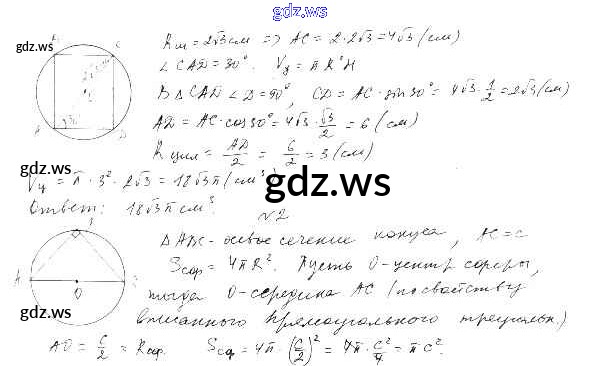 gdz.ws
gdz.ws
Rш = 2√3 см => AC = 2·2√3 = 4√3 (см)
∠CAD = 30°. Vц = πR²H
В ΔCAD ∠D = 90°, CD = AC·sin30° = 4√3·1/2 = 2√3 (см)
AD = AC·cos30° = 4√3·√3/2 = 6 (см)
gdz.ws
Rцил = AD/2 = 6/2 = 3 (см)
Vц = π·3²·2√3 = 18√3π (см³)
gdz.ws
Ответ: 18√3π см³.
gdz.ws
№2
ΔABC - осевое сечение конуса, AC = c
Sсф = 4πR². Пусть O - центр сферы,
gdz.ws
тогда O - середина AC (по свойству
вписанного прямоугольного треугольн.)
AO = c/2 = Rсф. Sсф = 4π·(c/2)² = 4π·c²/4 = πc².
gdz.ws